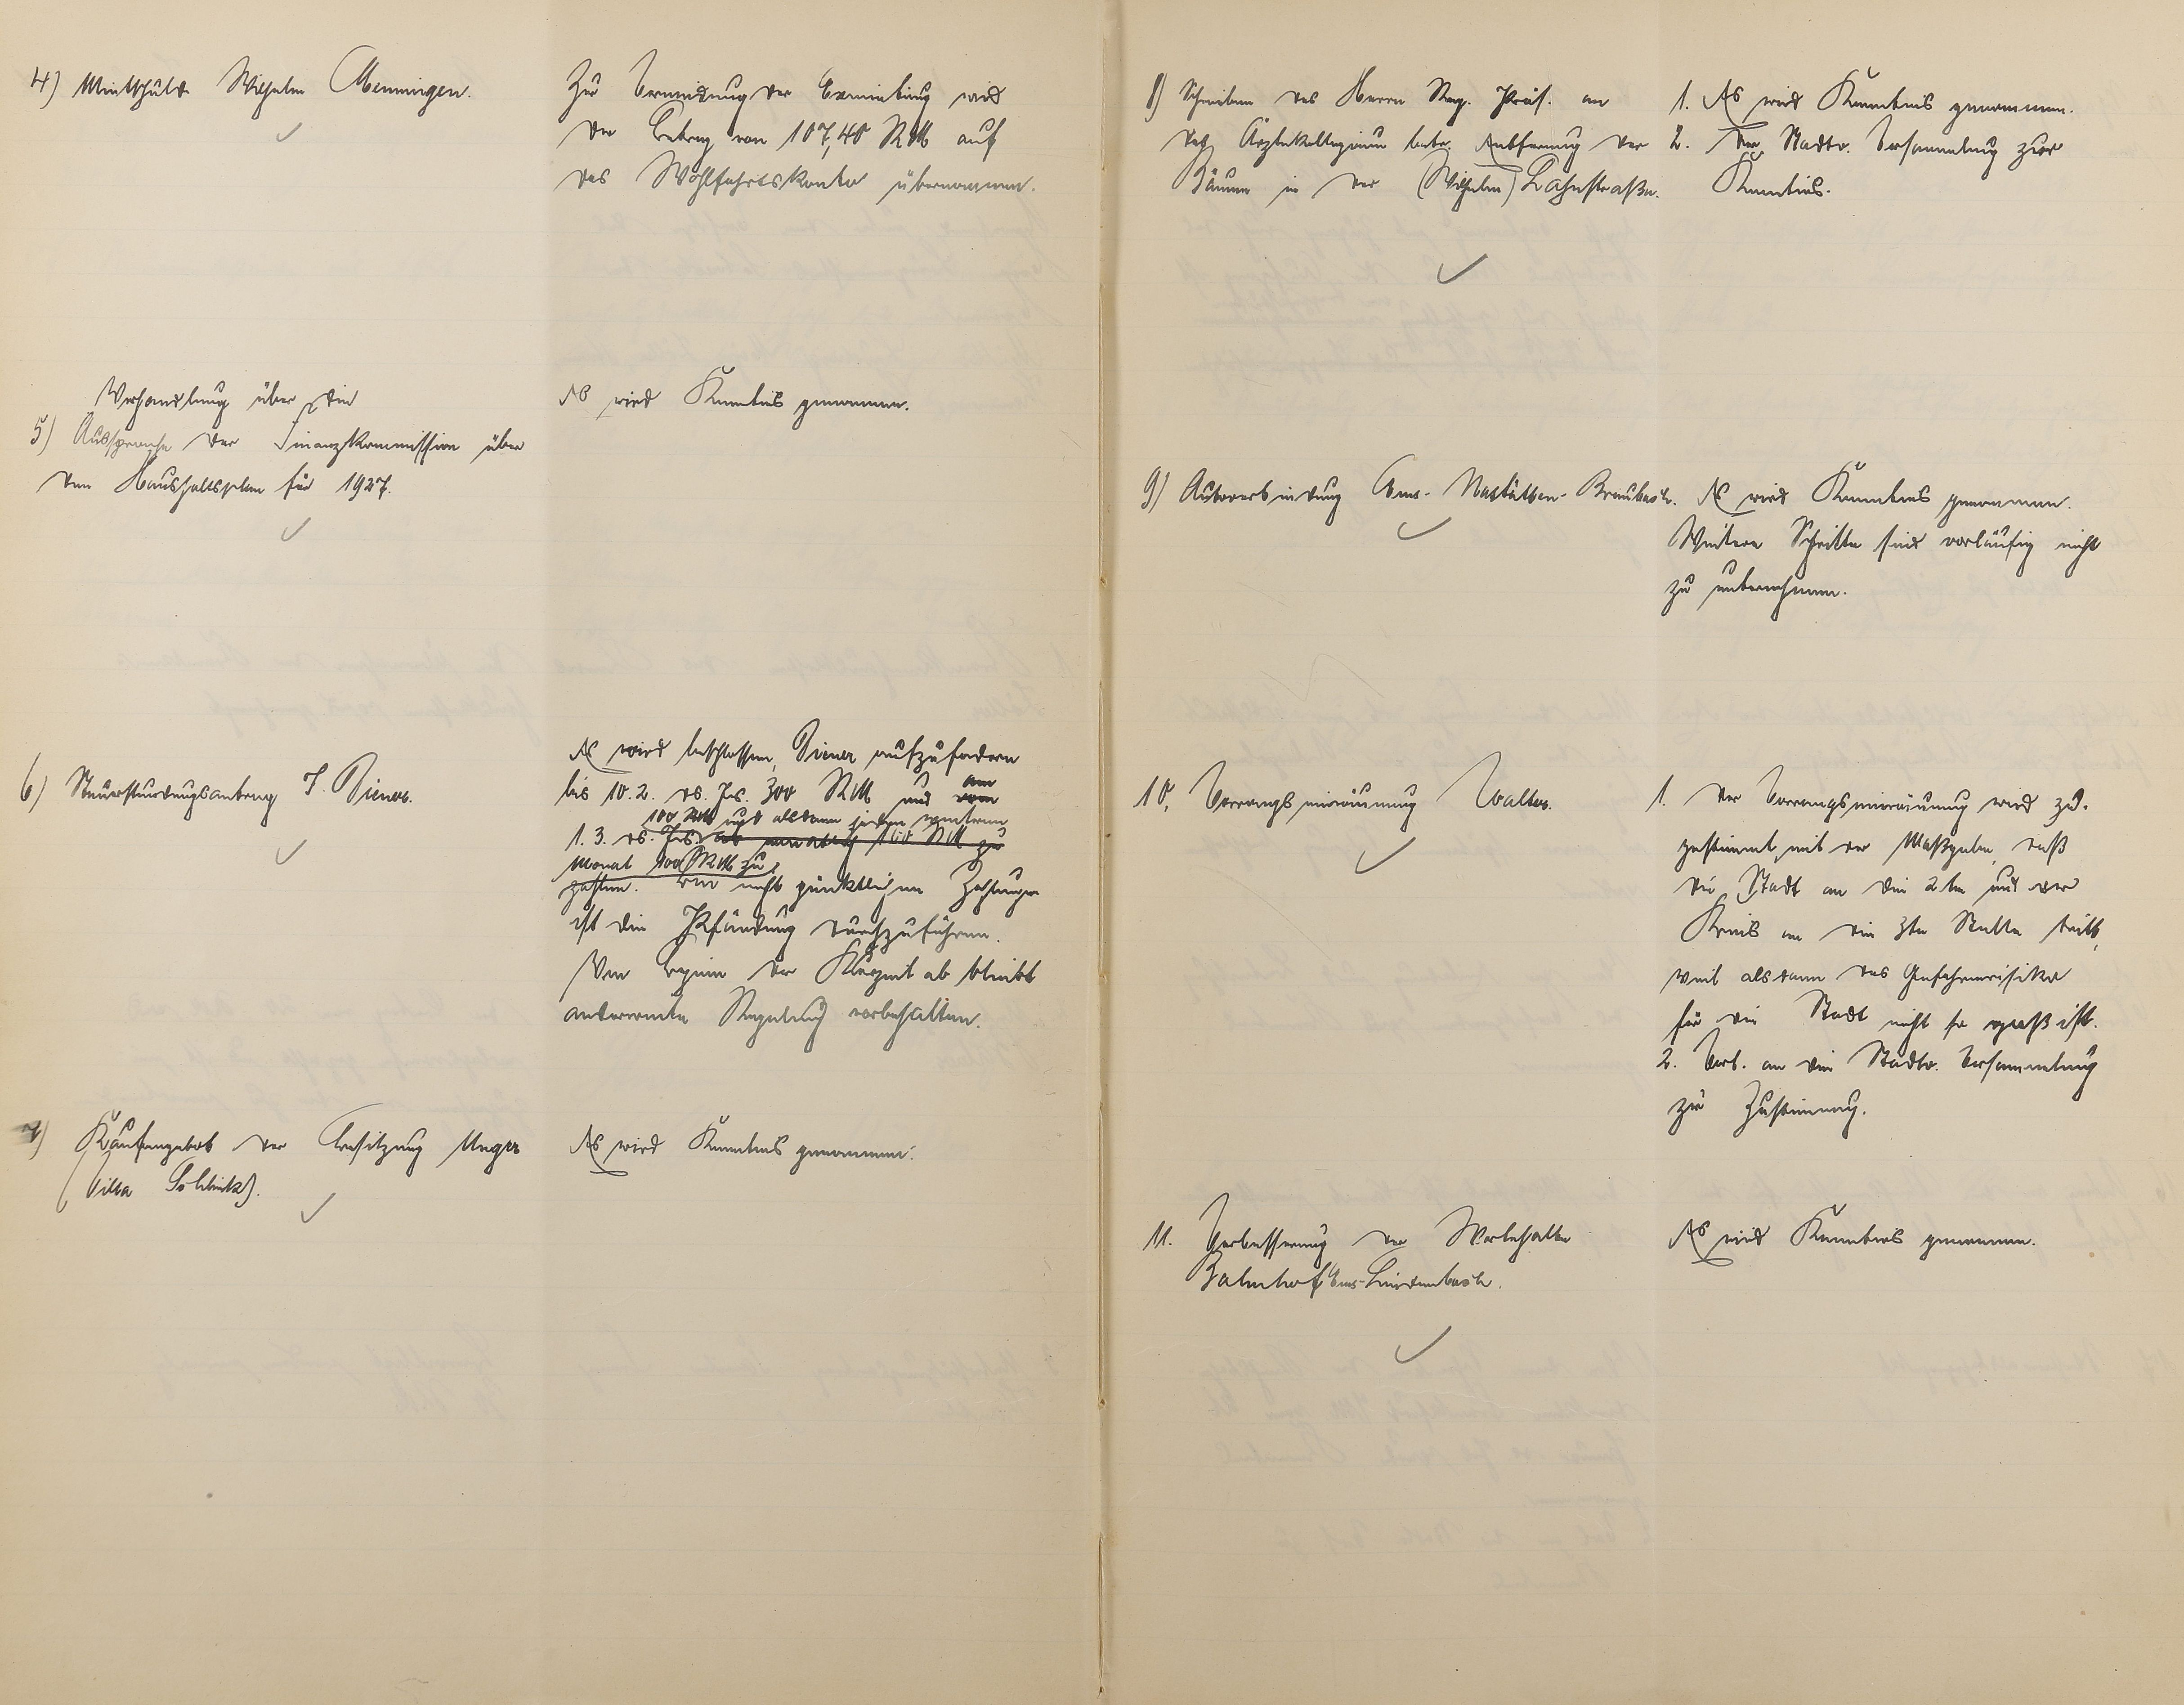 4) Mietschuld Wilhelm Menningen.
Zur Vermeidung der Exmietung wird
der Betrag von 107,40 RM auf
das Wohlfahrtskonto übernommen.
Verhandlung über die
5) Aussprache der Finanzkommission über
den Haushaltsplan für 1927.
Es wird Kenntnis genommen.
6) Steuerstundungsantrag J. Diener.
Es wird beschlossen, Diener aufzufordern
bis 10.2. ds. Js. 300 RM und am
100 RM und alsdann jeden weiteren
1.3. ds. Js. ab monatlich 100 RM zu
Monat 100 RM zu
zahlen. Bei nicht pünktlichen Zahlungen
ist die Pfändung durchzuführen.
Von Beginn der Kurzeit ab bleibt
anderweite Regelung vorbehalten.
7) Kaufangebot der Besitzung Unger
(Villa).
Es wird Kenntnis genommen.
8) Schreiben des Herrn Reg. Präs. an
das Ärztekollegium betr. Entfernung der
Bäume in der (Wilhelm) Lahnstraße.
1. Es wird Kenntnis genommen.
2. Der Stadtv. Versammlung zur
Kenntnis.
9) Autoverbindung Ems-Nastätten-Braubach.
Es wird Kenntnis genommen.
Weitere Schritte sind vorläufig nicht
zu unternehmen.
10. Vorrangseinräumung Walter.
1. Der Vorrangseinräumung wird zu-
gestimmt mit der Maßgabe, daß
die Stadt an die 2te und der
Kreis an die 3te Stelle tritt,
weil alsdann das Gefahrenrisiko
für die Stadt nicht so groß ist.
2. Vorl. an die Stadtv. Versammlung
zur Zustimmung.
11. Verbesserung der Wartehalle
Bahnhof Ems-Lindenbach.
Es wird Kenntnis genommen.